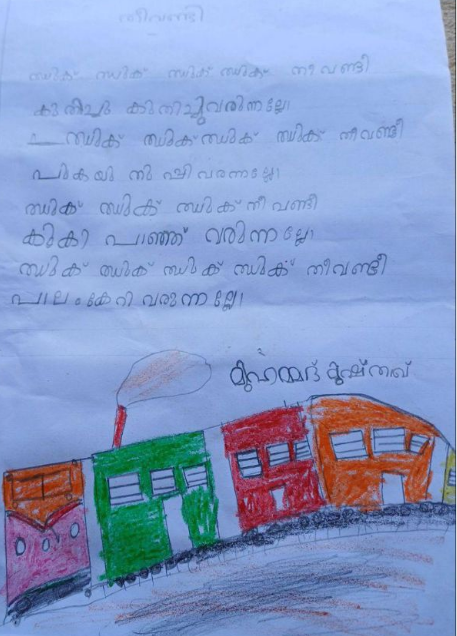 തീവണ്ടി
ഝുക് ഝുക് ഝുക് ഝുക് തീവണ്ടി
കുതിച്ചു കുതിച്ചുവരുന്നല്ലോ
ഝുക് ഝുക് ഝുക് ഝുക് തീവണ്ടീ
പുകയു തു പ്പി വരുന്നല്ലോ
ഝുക് ഝുക് ഝുക് തീവണ്ടീ
കൂകി പാഞ്ഞ് വരുന്നല്ലോ
ഝുക് ഝുക് ഝുക് ഝുക് തീവണ്ടീ
പാലം കേറി വരുന്നല്ലോ
മുഹമ്മദ് മുഷ്താഖ്